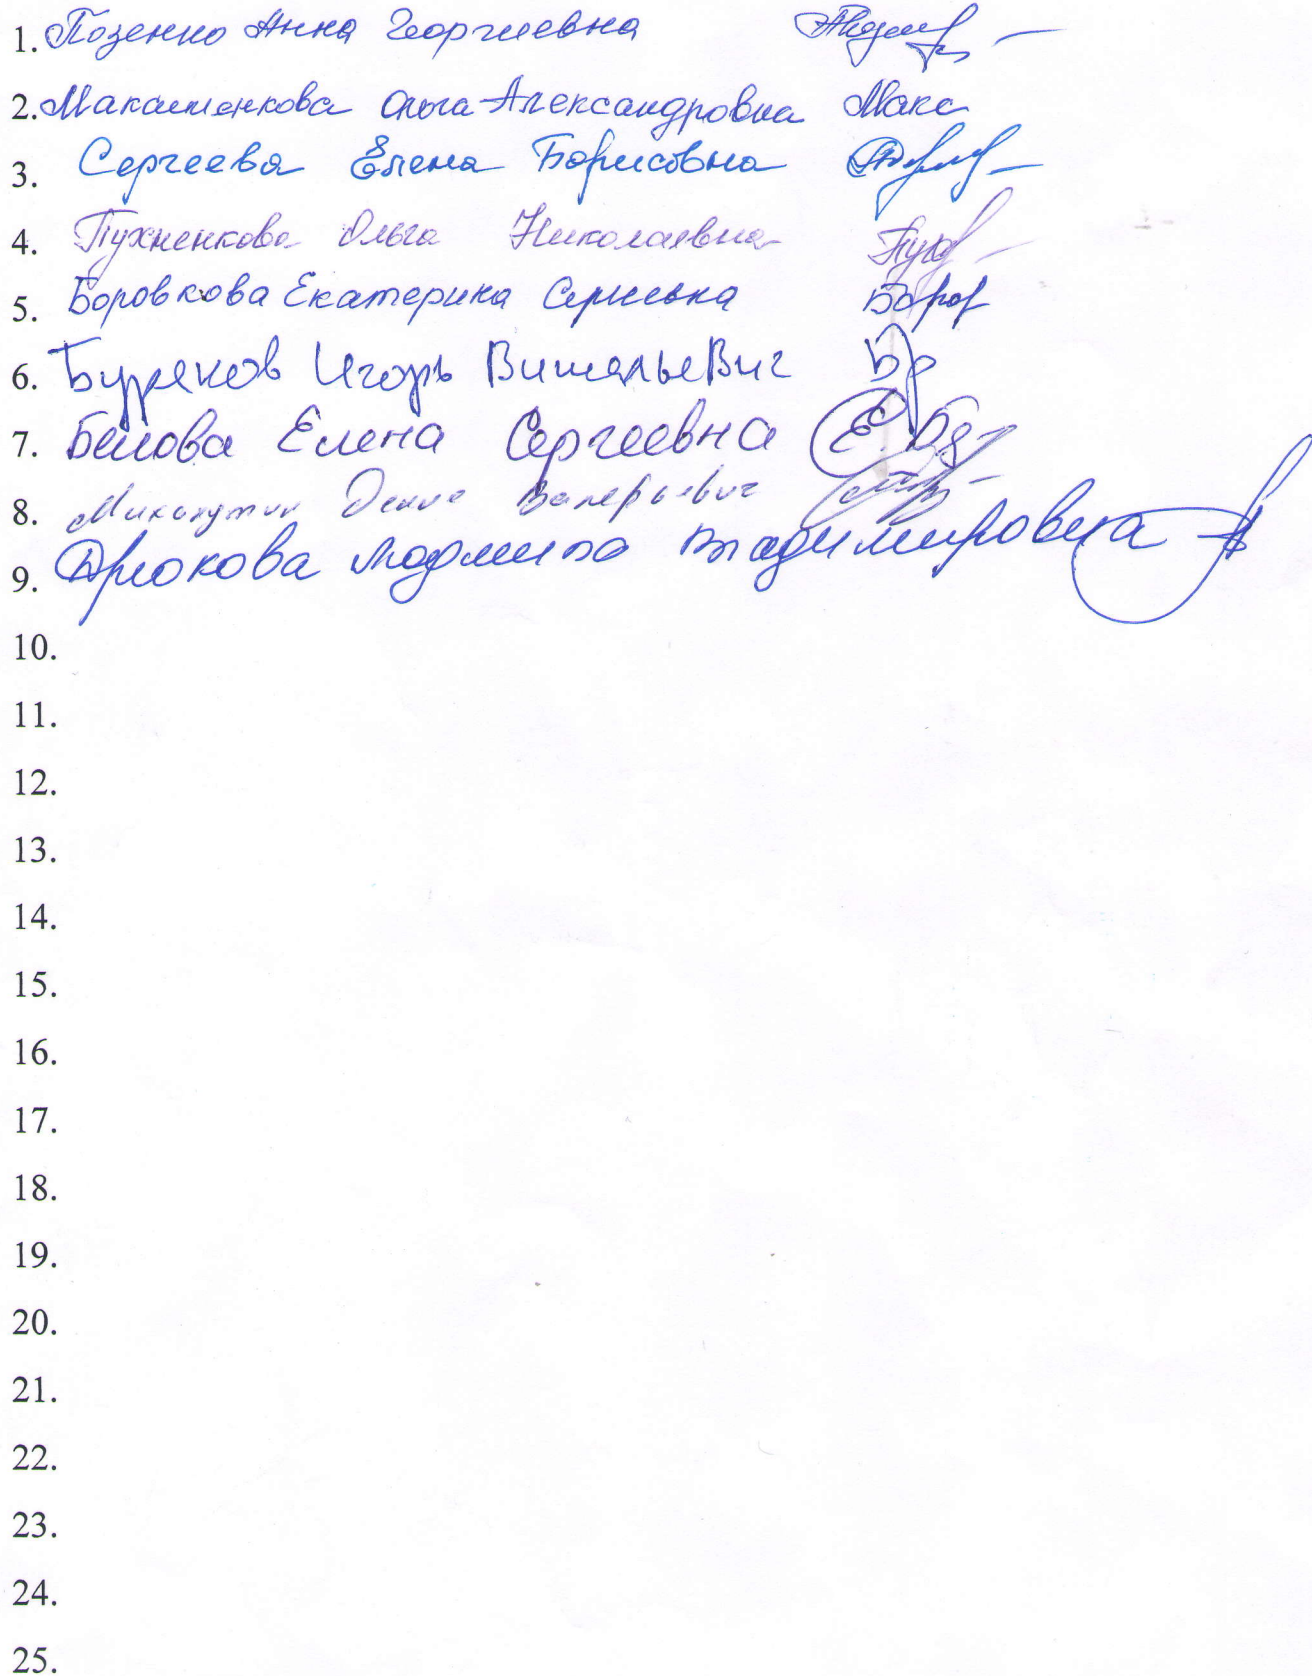 1. Позенко Анна Георгиевна
2. Макашенкова Ольга Александровна Макс
3. Сергеева Елена Борисовна
4. Пухненкова Ольга Николаевна
5. Боровкова Екатерина Сергеевна Боров
6. Буряков Игорь Витальевич
7. Белова Елена Сергеевна
8. Денис Валерьевич
9. Дрюкова Людмила Владимировна
10.
11.
12.
13.
14.
15.
16.
17.
18.
19.
20.
21.
22.
23.
24.
25.